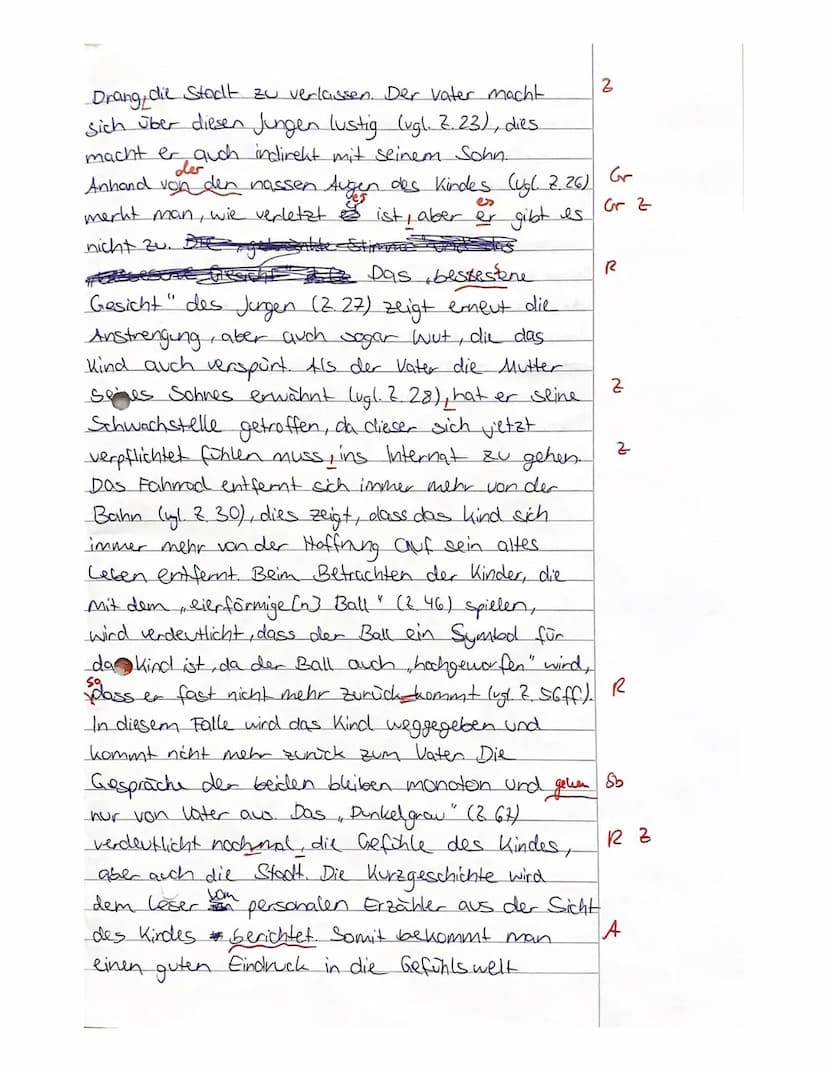 Drang, die Stadt zu verlassen. Der Vater macht Z
sich über diesen Jungen lustig (vgl. Z. 23), dies
macht er auch indirekt mit seinem Sohn.
der
Anhand von den nassen Augen des Kindes (vgl. Z. 26) Gr
es es
merkt man, wie verletzt ist, aber er gibt es Gr Z
nicht zu. Die „gekränkte Stimme" und das
Gesicht" Das „bestestene R
Gesicht" des Jungen (Z. 27) zeigt erneut die
Anstrengung, aber auch sogar Wut, die das
Kind auch verspürt. Als der Vater die Mutter
seines Sohnes erwähnt (vgl. Z. 28), hat er seine Z
Schwachstelle getroffen, da dieser sich jetzt
verpflichtet fühlen muss, ins Internat zu gehen. Z
Das Fahrrad entfernt sich immer mehr von der
Bahn (vgl. Z. 30), dies zeigt, dass das Kind sich
immer mehr von der Hoffnung auf sein altes
Leben entfernt. Beim Betrachten der Kinder, die
mit dem „eierförmige[n] Ball" (Z. 46) spielen,
wird verdeutlicht, dass der Ball ein Symbol für
das Kind ist, da der Ball auch „hochgeworfen" wird,
so
dass er fast nicht mehr zurück kommt (vgl. Z. 56ff). R
In diesem Falle wird das Kind weggegeben und
kommt nicht mehr zurück zum Vater. Die
Gespräche der beiden bleiben monoton und gehen Sb
nur von Vater aus. Das „Dunkelgrau" (Z. 67)
verdeutlicht nochmal, die Gefühle des Kindes, R Z
aber auch die Stadt. Die Kurzgeschichte wird
vom
dem Leser personalen Erzähler aus der Sicht
des Kindes berichtet. Somit bekommt man A
einen guten Eindruck in die Gefühlswelt